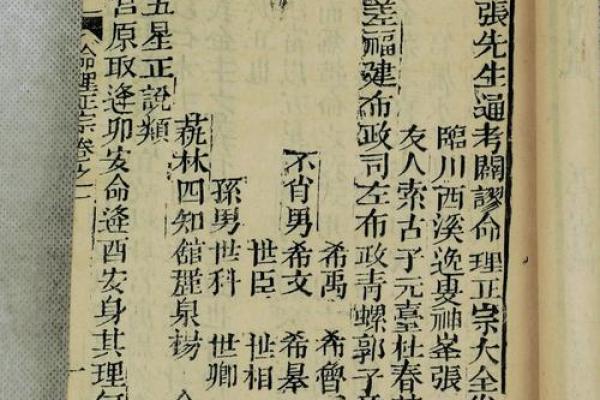 張先生通考闢謬命理正宗大全
臨川西溪逸叟神峯張
友人索古子元臺杜春
差福建布政司左布政青螺郭子
希禹 希魯
不肖男 希文 希皋
世臣 世相
孫男 世科 世卿
蓺林四知館麗泉楊
五星正說類
宮原取逢卯安命逢酉安身其理
命理正宗卷之一